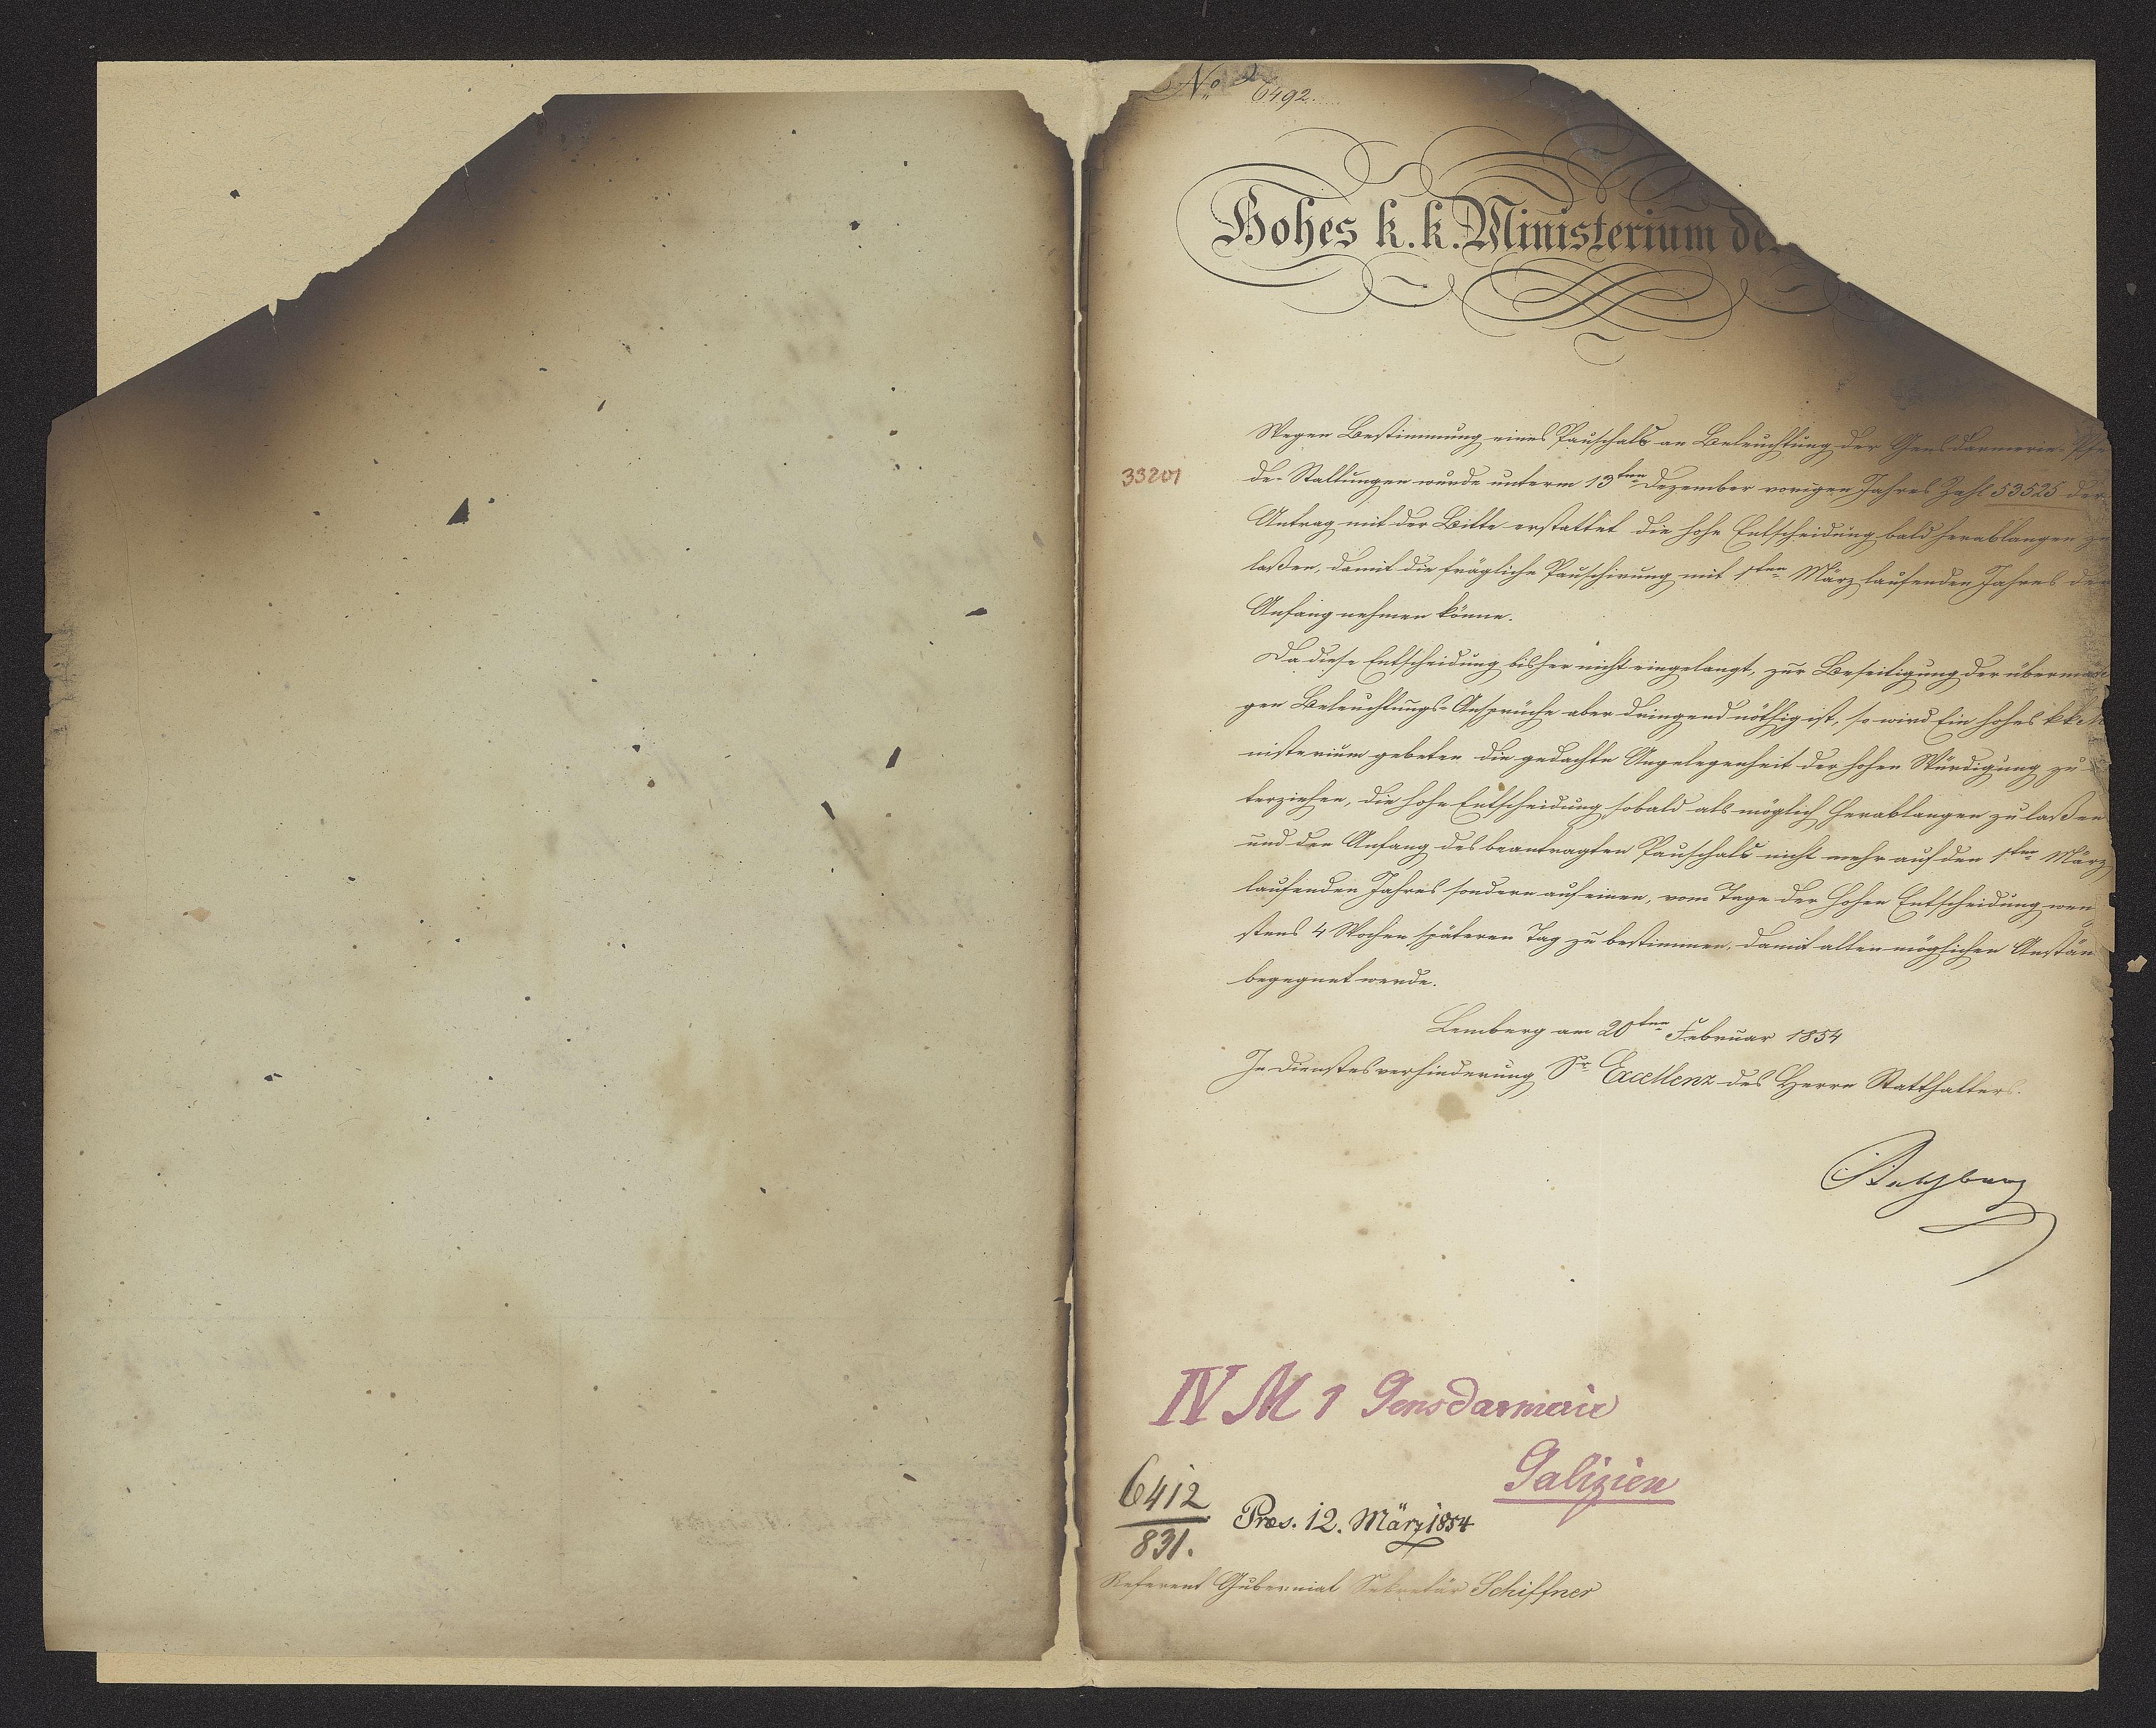 No 6492.
Hohes k. k. Ministerium de
Wegen Bestimmung eines Pauschals an Beleuchtung der Gensdarmerie-Pfe
33201
de-Stallungen wurde unterm 13ten Dezember vorigen Jahres Zahl 53525 der
Antrag mit der Bitte erstattet die hohe Entscheidung bald herablangen zu
laßen, damit die frägliche Pauschirung mit 1ten März laufenden Jahres den
Anfang nehmen könne.
Da diese Entscheidung bisher nicht eingelangt, zur Beseitigung der übermäßi
gen Beleuchtungs-Ansprüche aber dringend nöthig ist, so wird Ein hohes k.k. Mi
nisterium gebeten die gedachte Angelegenheit der hohen Würdigung zu
terziehen, die hohe Entscheidung sobald als möglich herablangen zu laßen
und den Anfang des beantragten Pauschals nicht mehr auf den 1ten März
laufenden Jahres sondern auf einen, vom Tage der hohen Entscheidung wen
stens 4 Wochen späteren Tag zu bestimmen, damit allen möglichen Anstän
begegnet werde.
Lemberg am 20ten Februar 1854
In Dienstesverhinderung Sr Excellenz des Herrn Statthalters.
IV M 1 Gensdarmerie
Galizien
6412
831.
Pres. 12. März 1854
Referent Gubernial Sekretär Schiffner